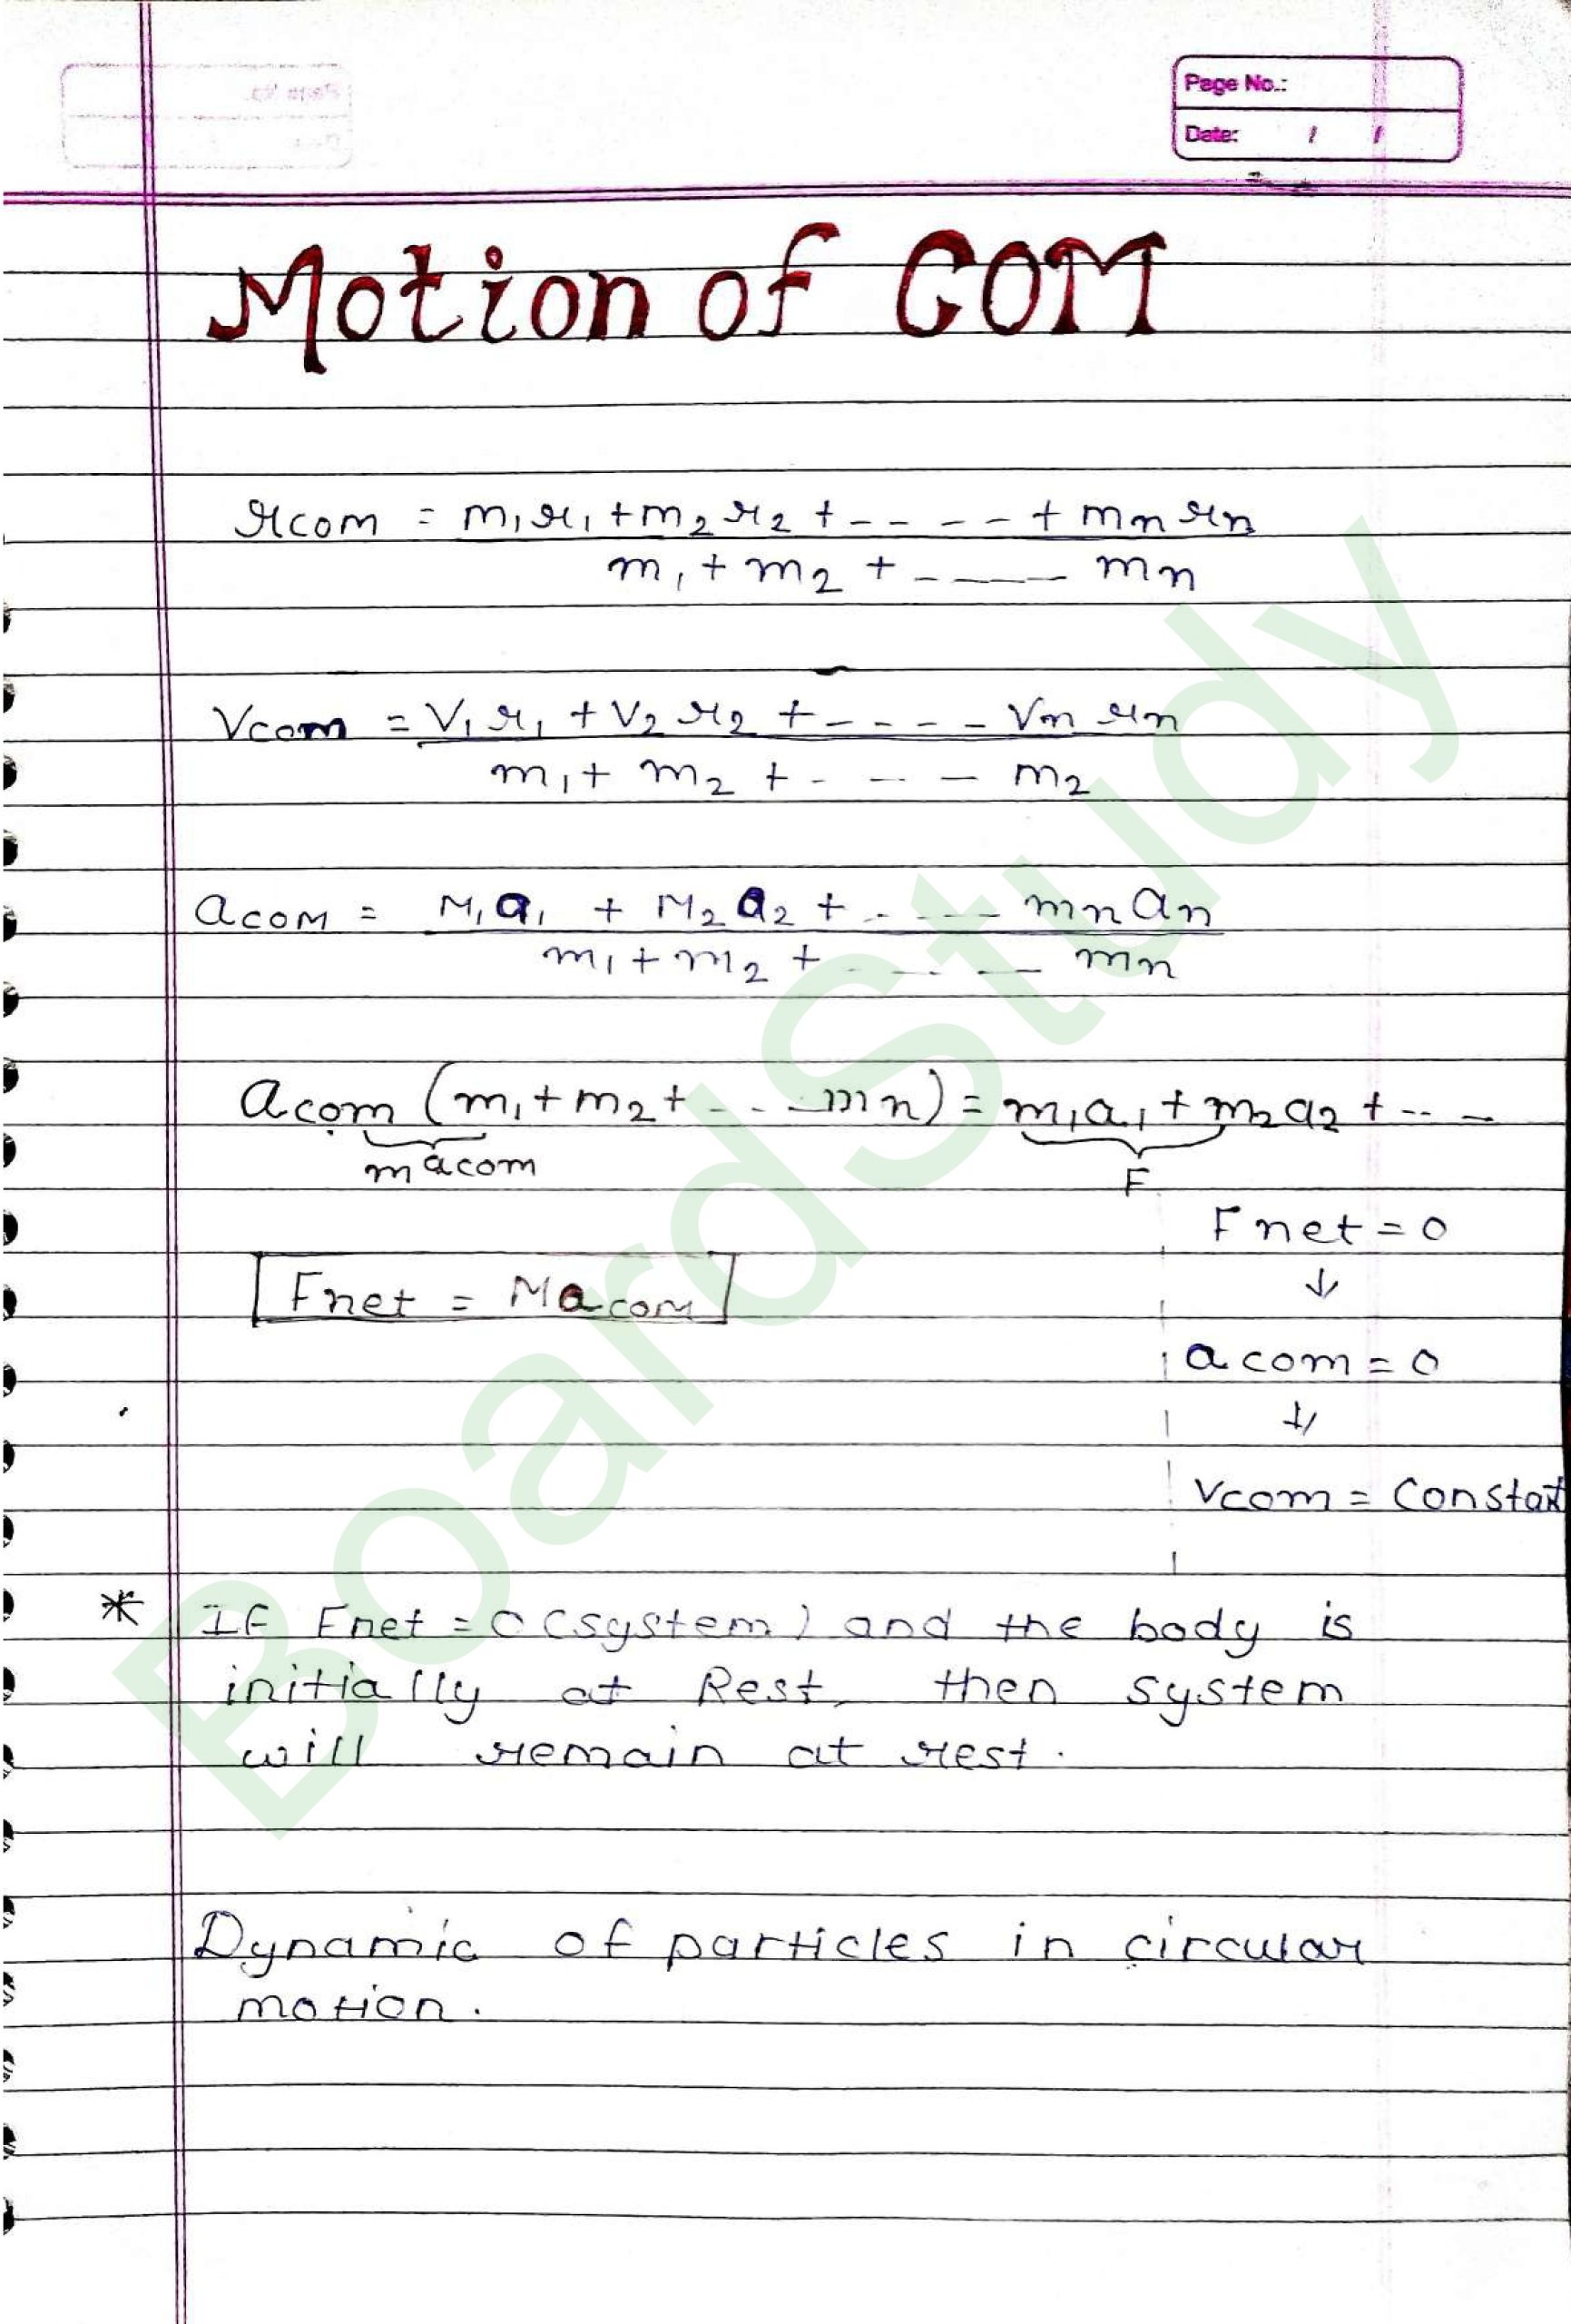 Page No.:
Date: / /
Motion of COM
rcom = m1r1 + m2r2 + - - - - + mnrn
m1 + m2 + - - - mn
Vcom = V1r1 + V2r2 + - - - - Vnrn
m1 + m2 + - - - m2
acom = M1a1 + M2a2 + - - - mnan
m1 + m2 + - - - mn
acom (m1 + m2 + - - - mn) = m1a1 + m2a2 + - - -
macom
F
Fnet = 0
↓
Fnet = Macom
acom = 0
↓
Vcom = Constat
* If Fnet = 0 (system) and the body is
initially at Rest, then system
will remain at rest.
Dynamic of particles in circular
motion.
BoardStudy